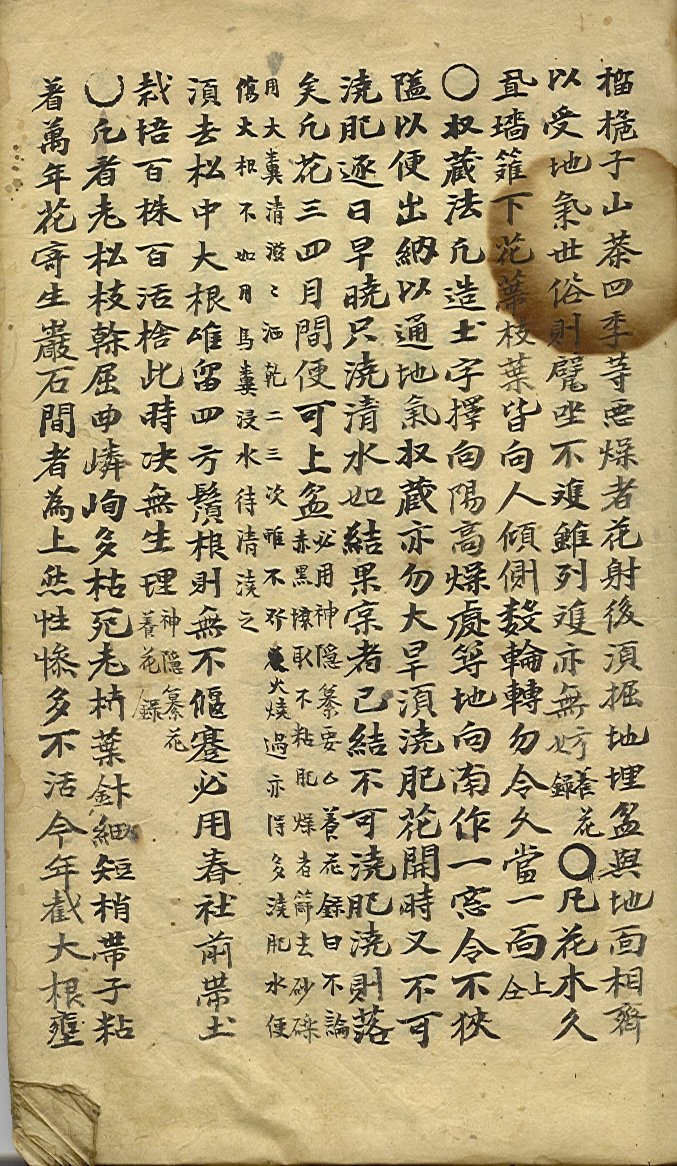 榴梔子山茶四季等惡燥者花射後湏掘地埋盆與地面相齊
以受地氣世俗則凳坐不凍雖列凍亦無妨養花錄○凡花木久
墻籬下花蕚枝葉皆向人傾側數輪轉勿令久當一面仝上
○収藏法凡造土宇擇向陽高燥處等地向南作一窓令不狹
隘以便出納以通地氣収藏亦勿大旱湏澆肥花開時又不可
澆肥逐日早曉只澆清水如結果宲者已結不可澆肥澆則落
矣凡花三四月間便可上盆
必用神隱纂要養花錄曰不論
赤黑壤取不粘肥燥者篩去砂礫
用大糞清潑〻洒乾二三次唯不火燒過亦得多澆肥水便
傷大根不如用馬糞浸水待清澆之
湏去松中大根唯留四方鬚根則無不偃蹇必用春社前帶土
栽培百株百活捨此時决無生理
神隱纂花
養花錄
○凡看老松枝幹屈曲嶙峋多枯死老枿葉針細短梢帶子粘
着萬年花寄生巖石間者為上然性慘多不活今年截大根壅